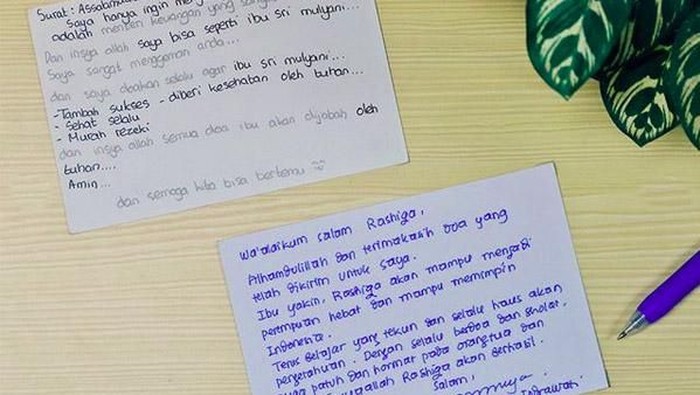 Surat : Assalamu
Saya hanya ingin
adalah menteri keuangan yang
Dan insya allah saya bisa seperti ibu sri mulyani...
Saya sangat menggemari anda...
dan saya doakan selalu agar ibu sri mulyani...
-Tambah sukses - diberi kesehatan oleh tuhan...
- Sehat selalu
- Murah rezeki
dan insya allah semua doa ibu akan dijabah oleh
tuhan....
Amin...
dan semoga kita bisa bertemu
Wa'alaikum salam Rashiga,
Alhamdulillah dan terimakasih doa yang
telah dikirim untuk saya.
Ibu yakin, Rashiga akan mampu menjadi
perempuan hebat dan mampu memimpin
Indonesia.
Terus belajar yang tekun dan selalu haus akan
pengetahuan. Dengan selalu berdoa dan sholat.
juga patuh dan hormat pada orangtua dan
Rashiga akan berhasil.
Salam,
Indrawati